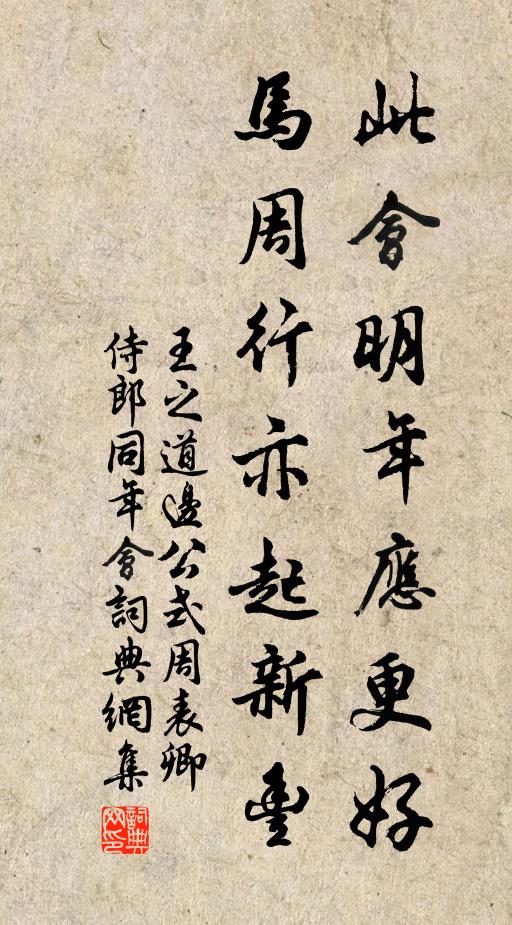 此會明年應更好
馬周行亦起新豐
王之道邊公式周表卿
侍郎同年會詞典網集
詞典網印